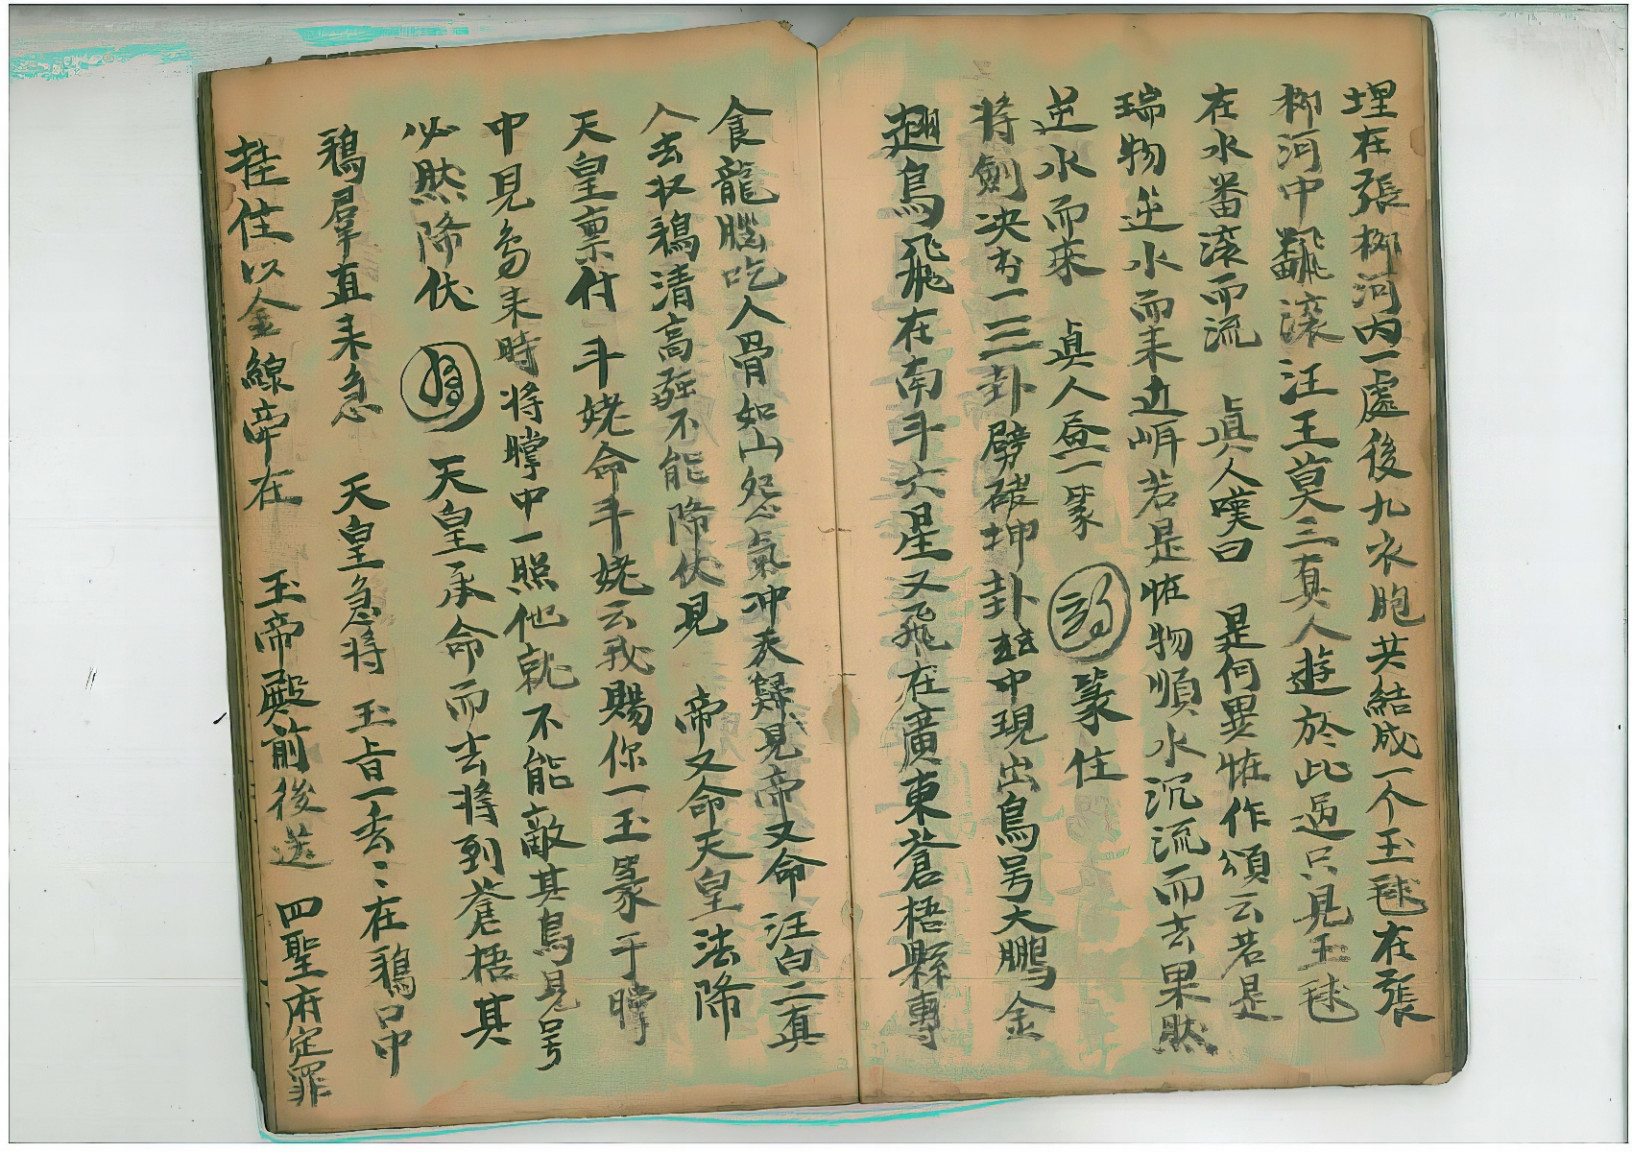 埋在張柳河内一處後九衣胞共結成一个玉毬在張
柳河中飜滚汪王莫三真人遊於此過只見玉毬
在水番滚而流 真人嘆曰 是何異怪作頌云若是
瑞物逆水而来近岸若是怪物順水沉流而去果然
逆水而來 真人盈一篆 篆住
将劍决書一三卦劈破坤卦中現出鳥号大鵬金
翅鳥飛在南斗六星又飛在廣東蒼梧縣専
食龍腦吃人骨如山怨氣冲天歸見帝又命汪白二真
人去收鵶清高強不能降伏見 帝又命天皇法降
天皇稟付斗姥命斗姥云我賜你一玉篆于
中見鳥来時将中一照他就不能敵其鳥見号
必然降伏 天皇承命而去将到蒼梧其
鵶群直来急 天皇急将 玉旨一去々在鵶口中
拄住以金線帝在 玉帝殿前後送 四聖府定罪